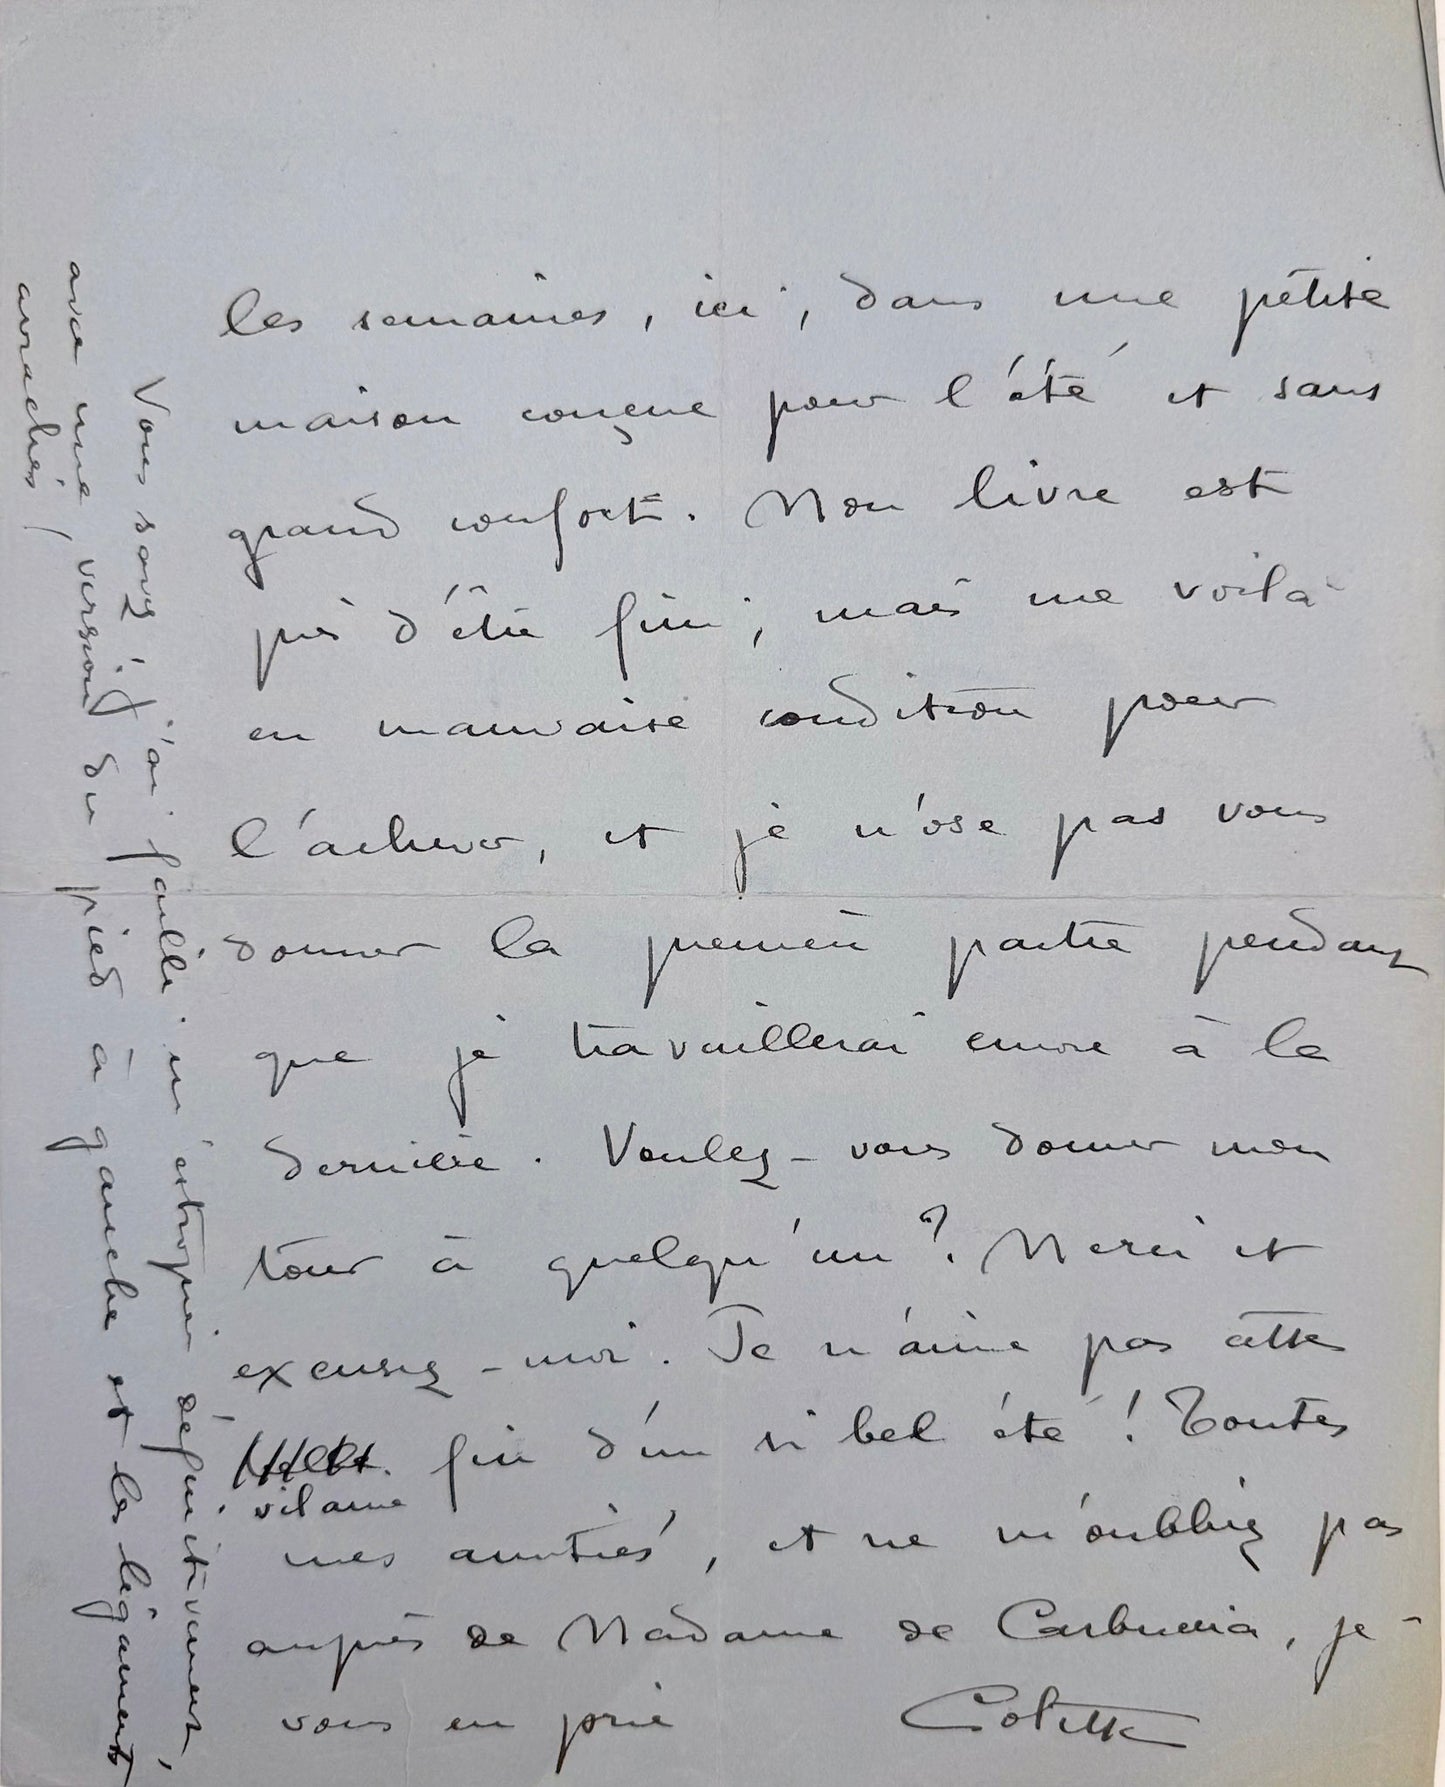 les semaines, ici, dans une petite
maison conçue pour l'été et sans
grand confort. Mon livre est
près d'être fini, mais me voilà
en mauvaise condition pour
l'achever, et je n'ose pas vous
donner la première partie pendant
que je travaillerai encore à la
dernière. Voulez-vous donner mon
tour à quelqu'un ? Merci et
excusez-moi. Je n'aime pas cette
fin d'un si bel été ! Toutes
vilaine
mes amitiés, et ne m'oubliez pas
auprès de Madame de Carbuccia, je
vous en prie
Colette
Vous savez, j'ai failli m'estropier définitivement,
avec une version du pied à gauche et les ligaments
arrachés